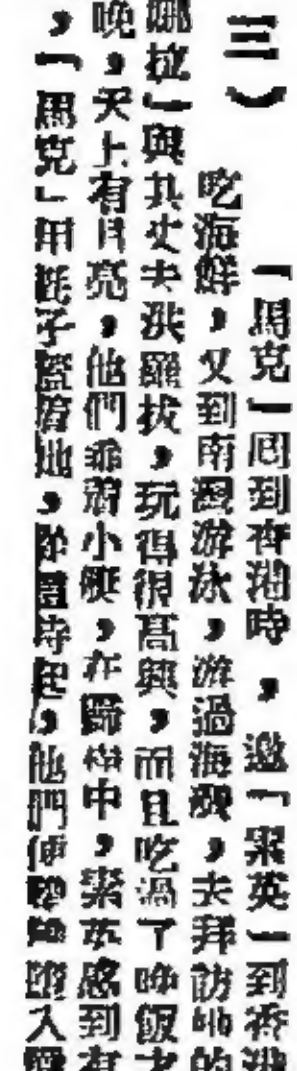 三)
「馬克」回到香港時,邀「素英」到香港
吃海鮮,又到南灣游泳,游過海灘,去拜訪他的
娜拉」與其丈夫洪羅拔,玩得很高興,而且吃過了晚飯才
晚,天上有月亮,他們乘着小艇,在歸途中,素英感到有
,「馬克」用毯子蓋着她,從這時起,他們便墮入愛